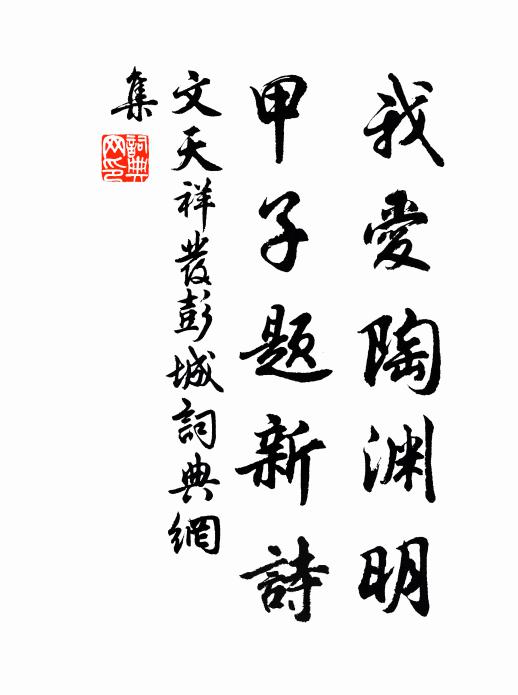 我愛陶渊明
甲子题新詩
文天祥發彭城詞典網
集
詞典
网印